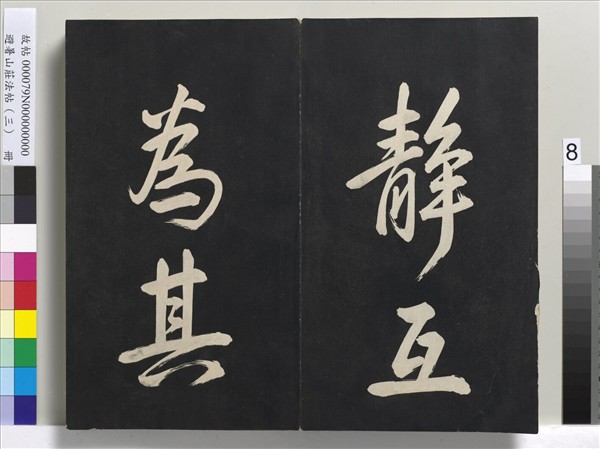 靜互
為其
故帖 000079N000000000
避暑山莊法帖（三） 冊
8